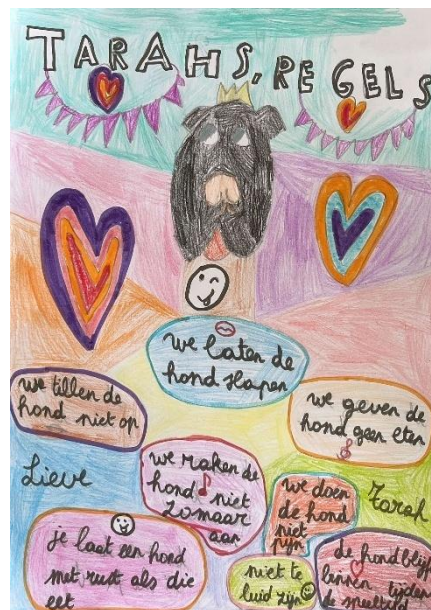 TARAHS, REGELS
we laten de
hond slapen
we tillen de
hond niet op
we geven de
hond geen eten
we raken de
hond niet
zomaar
aan
Lieve
we doen
de hond
niet
pijn
Tarah
je laat een hond
met rust als die
eet
niet te
luid zijn
de hond blijft
binnen tijdens
de speeltijd